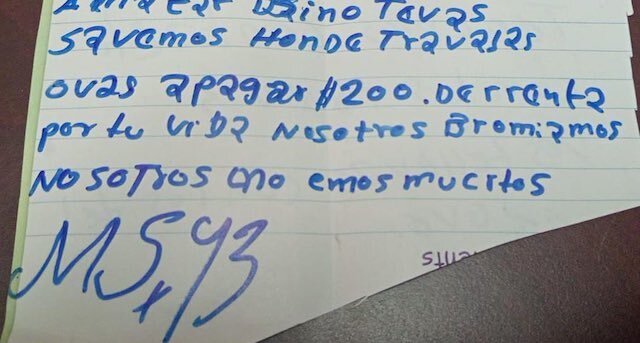 savemos Honde Travajas
ovas apagar $200. De rranta
por tu viDa Nosotros Bromiamos
NosoTros ono emos muertos
MSx93